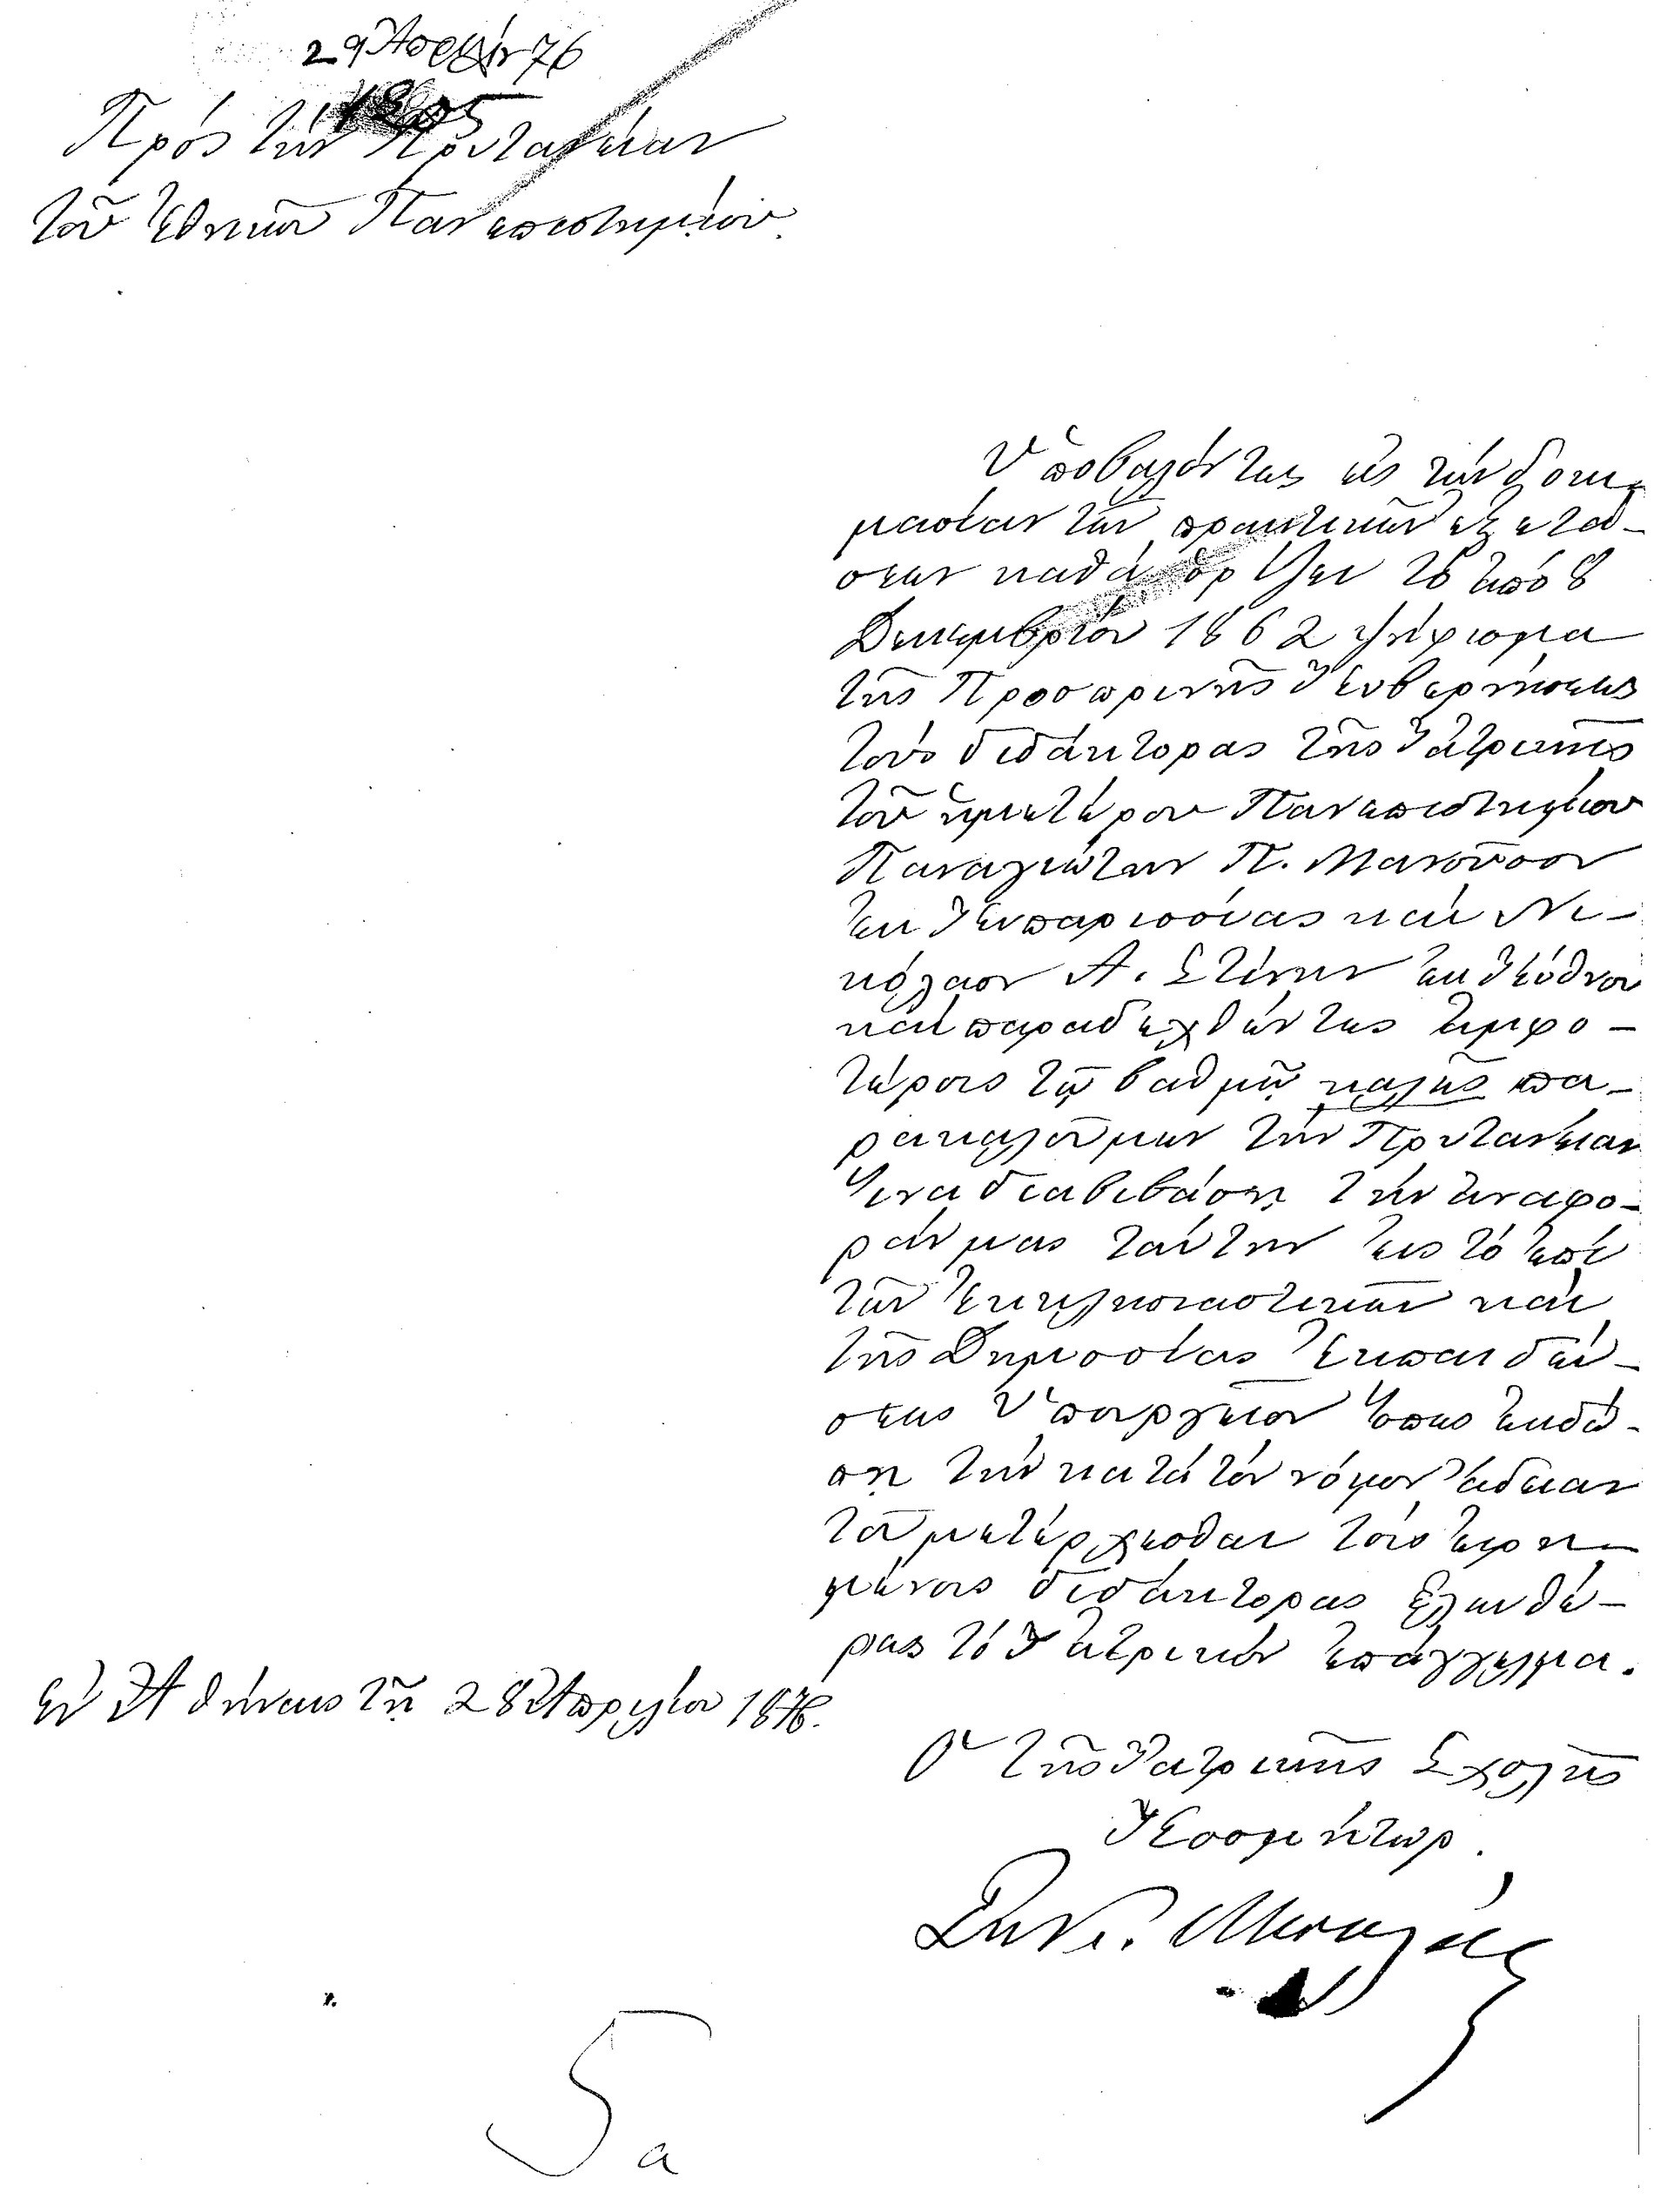 29 Ἀπριλ 76
Πρός τήν Πρυτανείαν
τοῦ Ἐθνικοῦ Πανεπιστημίου.
Ὑποβαλόντες εἰς τήν δοκι-
μασίαν τῶν πρακτικῶν ἐξετά-
σεων καθά ὁρίζει τό ἀπό 8
Δεκεμβρίου 1862 ψήφισμα
τῆς Προσωρινῆς Κυβερνήσεως
τούς διδάκτορας τῆς Ἰατρικῆς
τοῦ ἡμετέρου Πανεπιστημίου
Παναγιώτην Π. Μανοῦσον
ἐκ Κυπαρισσίας καί Νι-
κόλαον Α. Στίνην ἐκ Κύθνου
καί παραδεχθέντες ἀμφο-
τέρους τῷ βαθμῷ καλῶς πα-
ρακαλοῦμεν τήν Πρυτανείαν
ἵνα διαβιβάσῃ τήν ἀναφο-
ράν μας ταύτην εἰς τό ἐπί
τῶν Ἐκκλησιαστικῶν καί
τῆς Δημοσίας Ἐκπαιδεύ-
σεως Ὑπουργεῖον ὅπως ἐκδώ-
σῃ τήν κατά τόν νόμον ἄδειαν
τοῦ μετέρχεσθαι τούς εἰρη-
μένους διδάκτορας ἐλευθέ-
ρως τό Ἰατρικόν ἐπάγγελμα.
Ἐν Ἀθήναις τῇ 28 Ἀπριλίου 1876.
Ὁ τῆς Ἰατρικῆς Σχολῆς
Κοσμήτωρ.
5
α